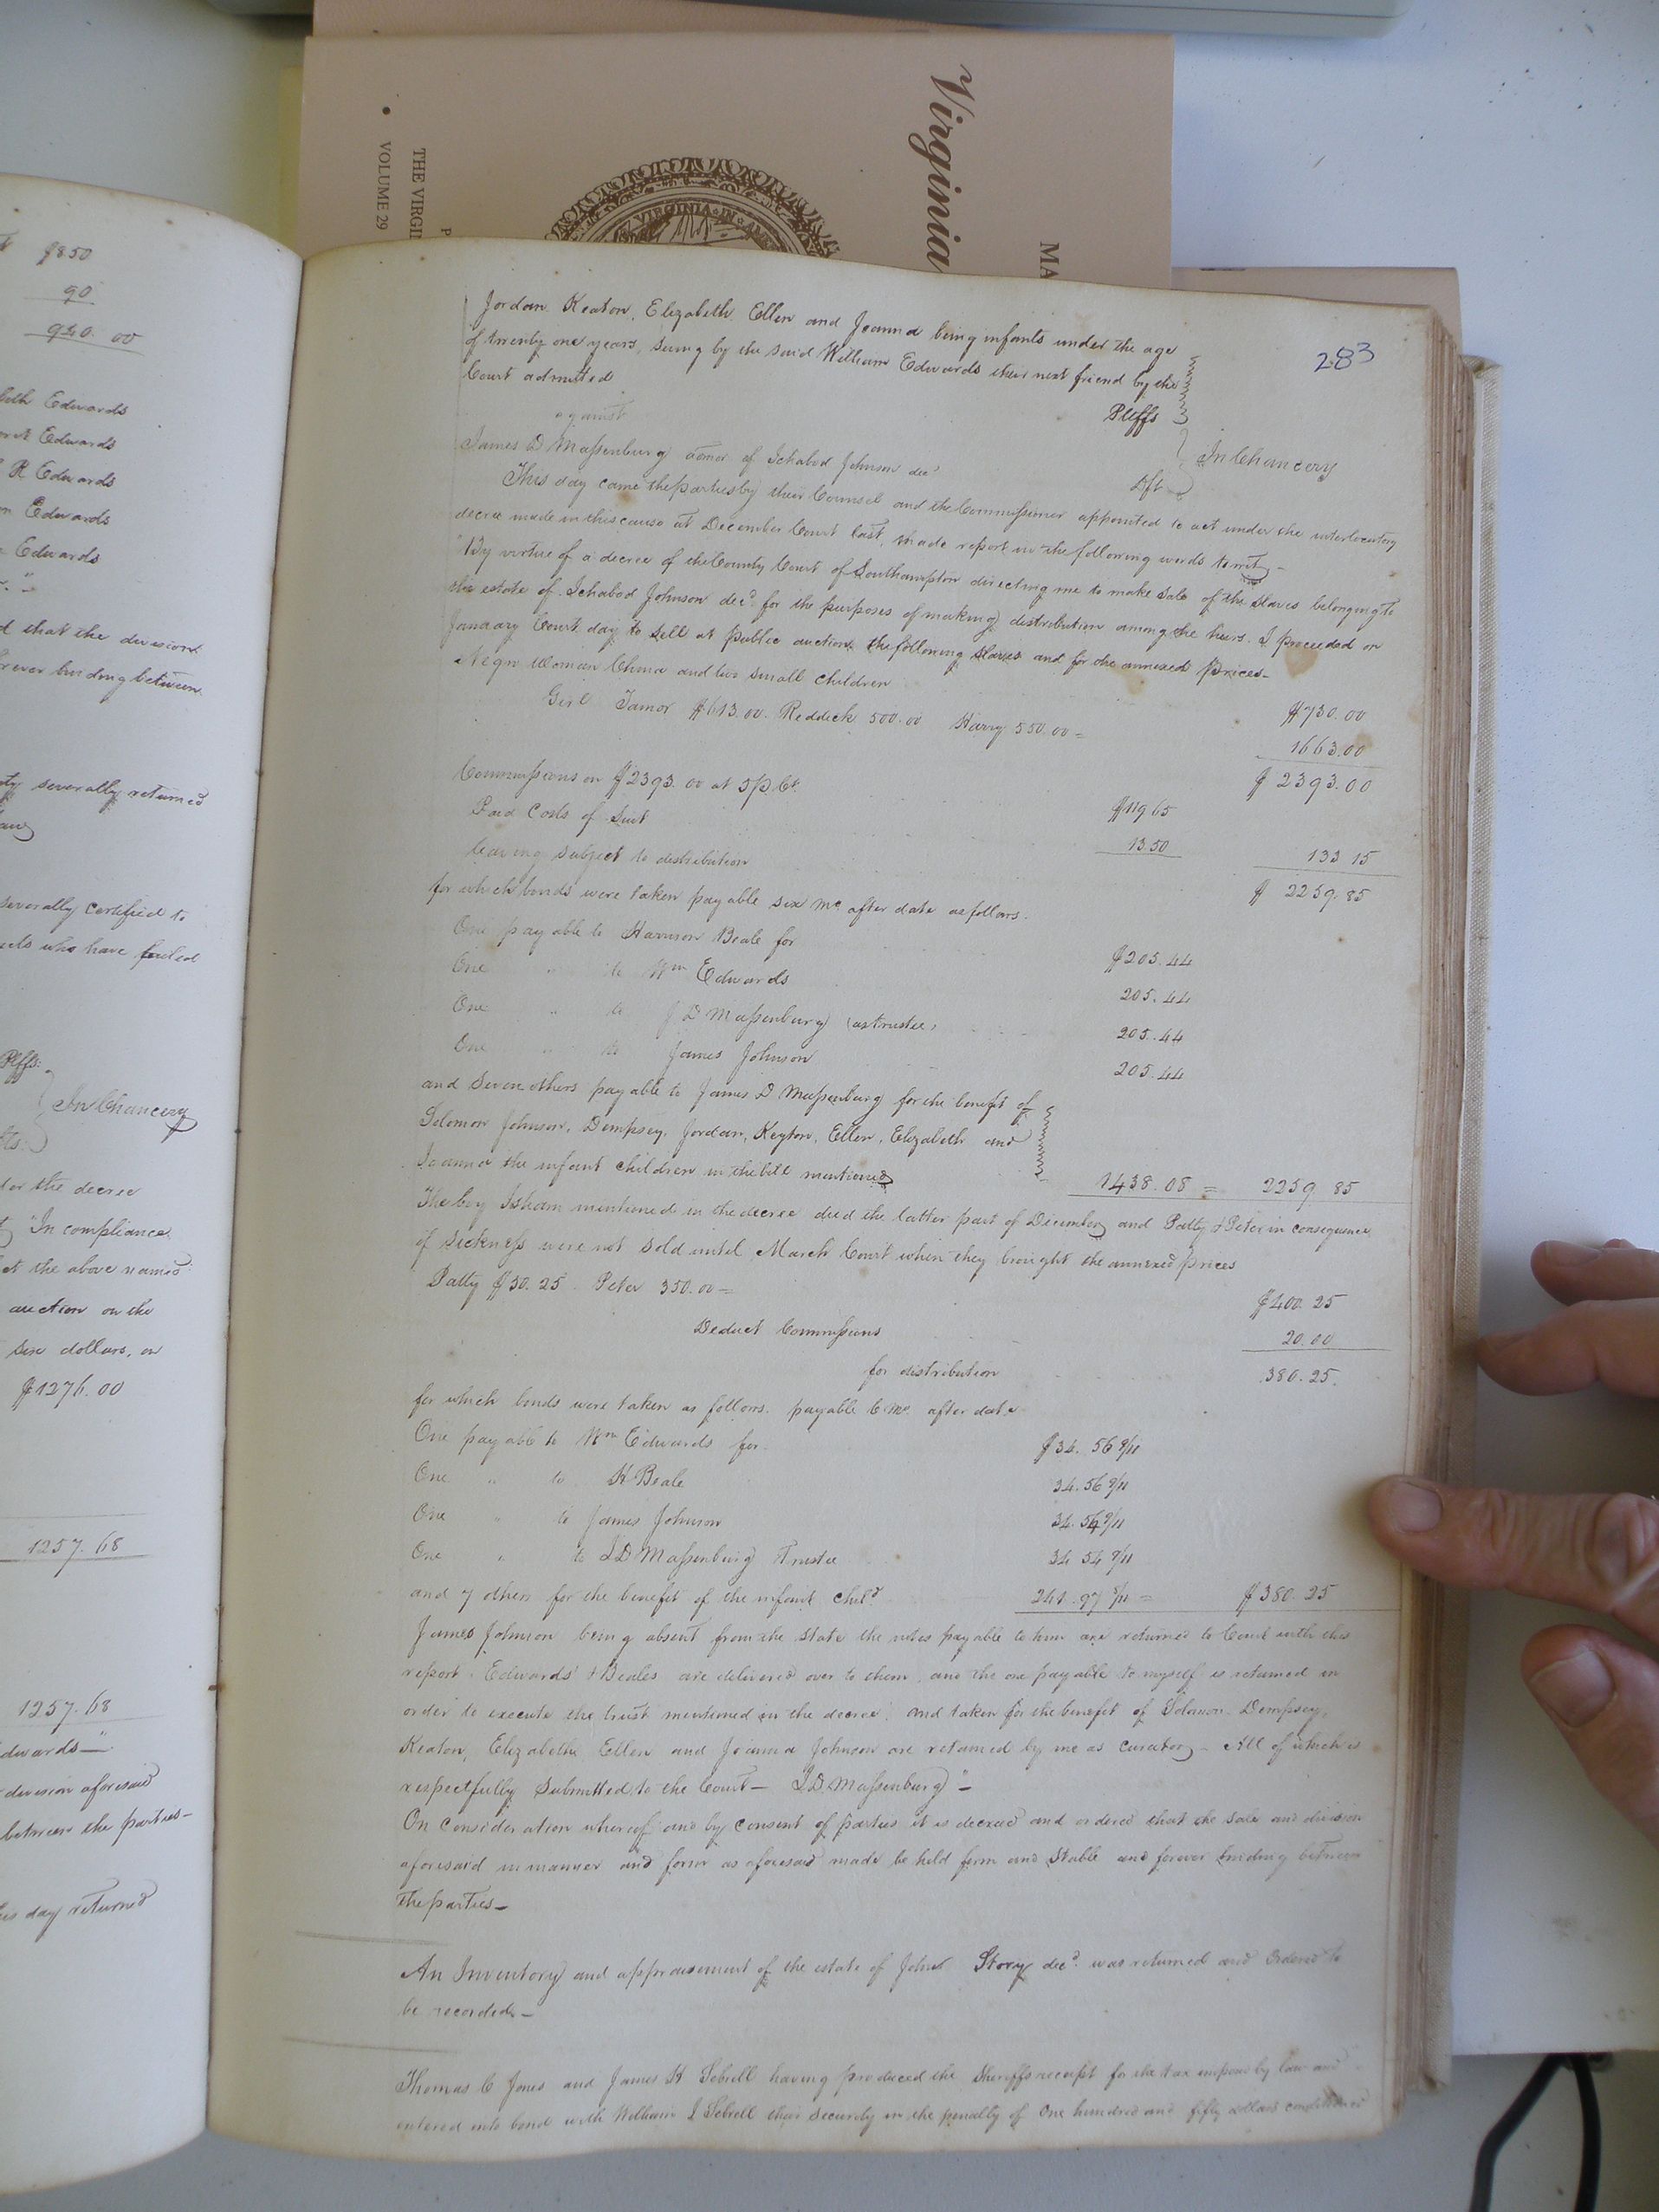 Virginia
MA
THE VIRGI
VOLUME 29
P
VIRGINIA IN
$850
90
940.00
beth Edwards
Edwards
R Edwards
n Edwards
Edwards
d that the division
forever binding between
ty severally returned
severally certified to
who have failed
Plffs.
In Chancery
for the decree
"In compliance
at the above named
auction on the
six dollars, on
$1276.00
1257.68
1257.68
dwards —
division aforesaid
between the parties —
his day returned
283
Jordan Keaton, Elizabeth Ellen and Joanna being infants under the age
of twenty one years, suing by the said William Edwards their next friend by the
Court admitted
Pltffs
against
In Chancery
James D Massenburg admor of Ichabod Johnson decd
Dft
This day came the parties by their Counsel and the Commissioner appointed to act under the interlocutory
decree made in this cause at December Court last, made report in the following words to wit, —
"By virtue of a decree of the County Court of Southampton directing me to make sale of the slaves belonging to
the estate of Ichabod Johnson decd for the purposes of making distribution among the heirs. I proceeded on
January Court day to sell at public auction the following slaves and for the annexed prices —
Negro Woman China and two small children
$730.00
Girl Tamor $613.00. Reddick 500.00 Harry 550.00 =
1663.00
$2393.00
Commissions on $2393.00 at 5 p. Ct.
$119 65
Paid Costs of Suit
13.50
133 15
leaving subject to distribution
$2259.85
for which bonds were taken payable six mo after date as follows.
One payable to Harrison Beale for
$205.44
One " to Wm Edwards
205.44
One " to J D Massenburg (as trustee)
205.44
One " to James Johnson
205.44
and seven others payable to James D Massenburg for the benefit of
Solomon Johnson, Dempsey, Jordan, Keyton, Ellen, Elizabeth and
Joanna the infant children in the bill mentioned
1438.08 = 2259 85
The boy Isham mentioned in the decree died the latter part of December and Patty & Peter in consequence
of sickness were not sold until March Court when they brought the annexed prices
Patty $50.25. Peter 350.00 =
$400.25
Deduct Commissions
20.00
for distribution
380.25.
for which bonds were taken as follows. payable 6 mo after date
One payable to Wm Edwards for
$34.56 9/11
One " to H Beale
34.56 9/11
One " to James Johnson
34.56 9/11
One " to J D Massenburg Trustee
34 54 9/11
and 7 others for the benefit of the infant Child
241.97 8/11 = $380.25
James Johnson being absent from the state the notes payable to him are returned to Court with this
report. Edwards' & Beales are delivered over to them, and the one payable to myself is retained in
order to execute the trust mentioned in the decree, and taken for the benefit of Solomon Dempsey,
Keaton, Elizabeth Ellen and Joanna Johnson are retained by me as Curator — All of which is
respectfully submitted to the Court — J D Massenburg" —
On Consideration whereof and by consent of parties it is decreed and ordered that the sale and division
aforesaid in manner and form as aforesaid made be held firm and stable and forever binding between
the parties —
An Inventory and appraisement of the estate of John Story decd. was returned and Ordered to
be recorded —
Thomas C Jones and James H Sebrell having produced the Sheriffs receipt for the tax imposed by law and
entered into bond with William J Sebrell their security in the penalty of One hundred and fifty dollars conditioned